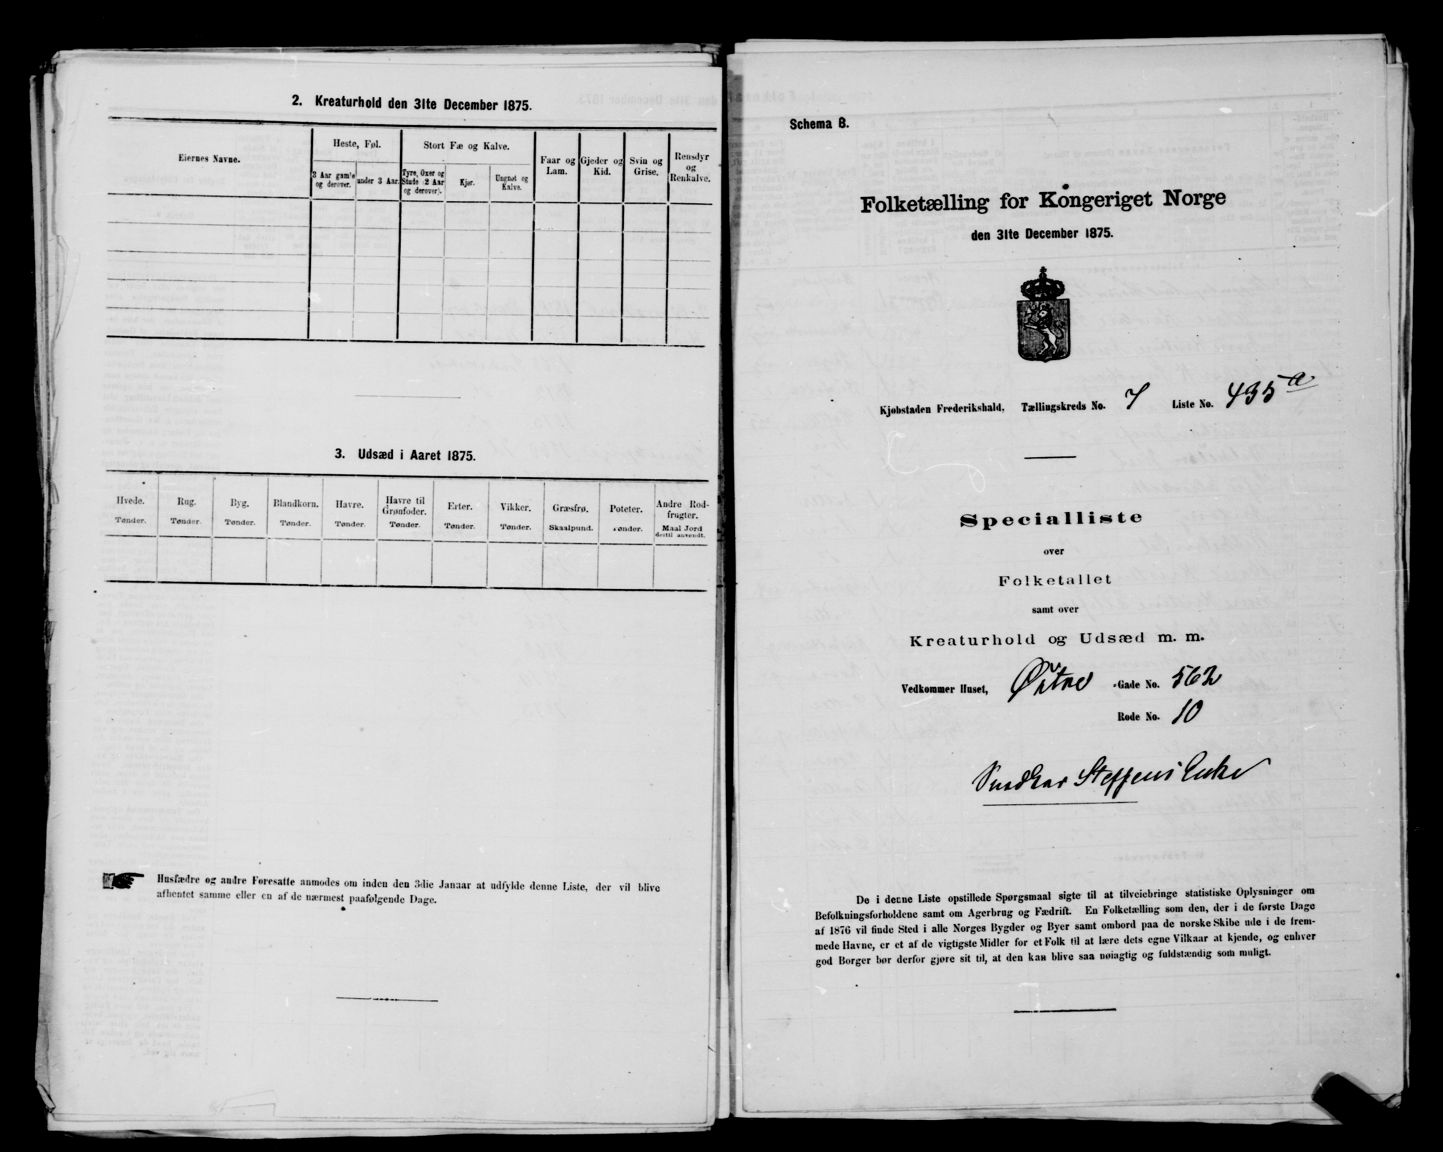 2. Kreaturhold den 31te December 1875.
Eiernes Navne.
Heste, Føl.
Stort Fæ og Kalve.
Faar og Lam.
Gjeder og Kid.
Svin og Grise.
Rensdyr og Renkalve.
3 Aar gam'e og derover.
under 3 Aar.
Tyre, Oxer og Stude 2 Aar og derover.
Kjør.
Ungnøt og Kalve.
3. Udsæd i Aaret 1875.
Hvede. Rug. Byg. Blandkorn. Havre. Havre til Grønfoder. Erter. Vikker. Græsfrø. Poteter. Andre Rodfrugter.
Tønder. Tønder. Tønder. Tønder. Tønder. Tønder. Tønder. Tønder. Skaalpund. Tønder. Maal Jord dertil anvendt.
Husfædre og andre Foresatte anmodes om inden den 3die Januar at udfylde denne Liste, der vil blive
afhentet samme eller en af de nærmest paafølgende Dage.
Schema B.
Folketælling for Kongeriget Norge
den 31te December 1875.
Kjøbstaden Frederikshald. Tællingskreds No. 7 Liste No. 435 a
Specialliste
over
Folketallet
samt over
Kreaturhold og Udsæd m. m.
Vedkommer Huset, Østre Gade No. 562
Rode No. 10
Snedker Steffens Enke
De i denne Liste opstillede Spørgsmaal sigte til at tilveiebringe statistiske Oplysninger om
Befolkningsforholdene samt om Agerbrug og Fædrift. En Folketælling som den, der i de første Dage
af 1876 vil finde Sted i alle Norges Bygder og Byer samt ombord paa de norske Skibe ude i de frem-
mede Havne, er et af de vigtigste Midler for et Folk til at lære dets egne Vilkaar at kjende, og enhver
god Borger bør derfor gjøre sit til, at den kan blive saa nøiagtig og fuldstændig som muligt.